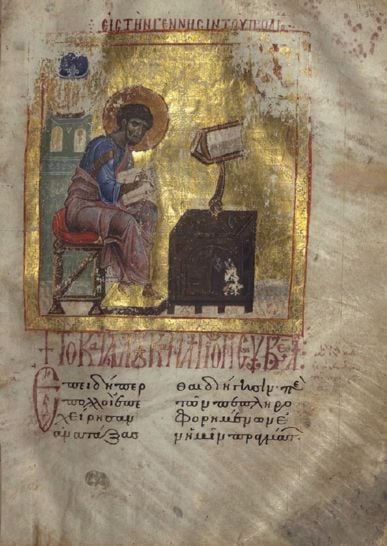 ΕΙΣ ΤΗΝ ΓΕΝΝΗΣΙΝ ΤΟΥ ΠΡΟΔΡ
ΤΟ ΚΑΤΑ ΛΟΥΚΑΝ ΑΓΙΟΝ ΕΥΑΓΓΕ
Ἐπειδήπερ
πολλοὶ ἐπε
χείρησαν
ἀνατάξασ
θαι διήγησιν πε
τῶν πεπληρο
φορημένων ἐ
ν ἡμῖν πραγμάτ